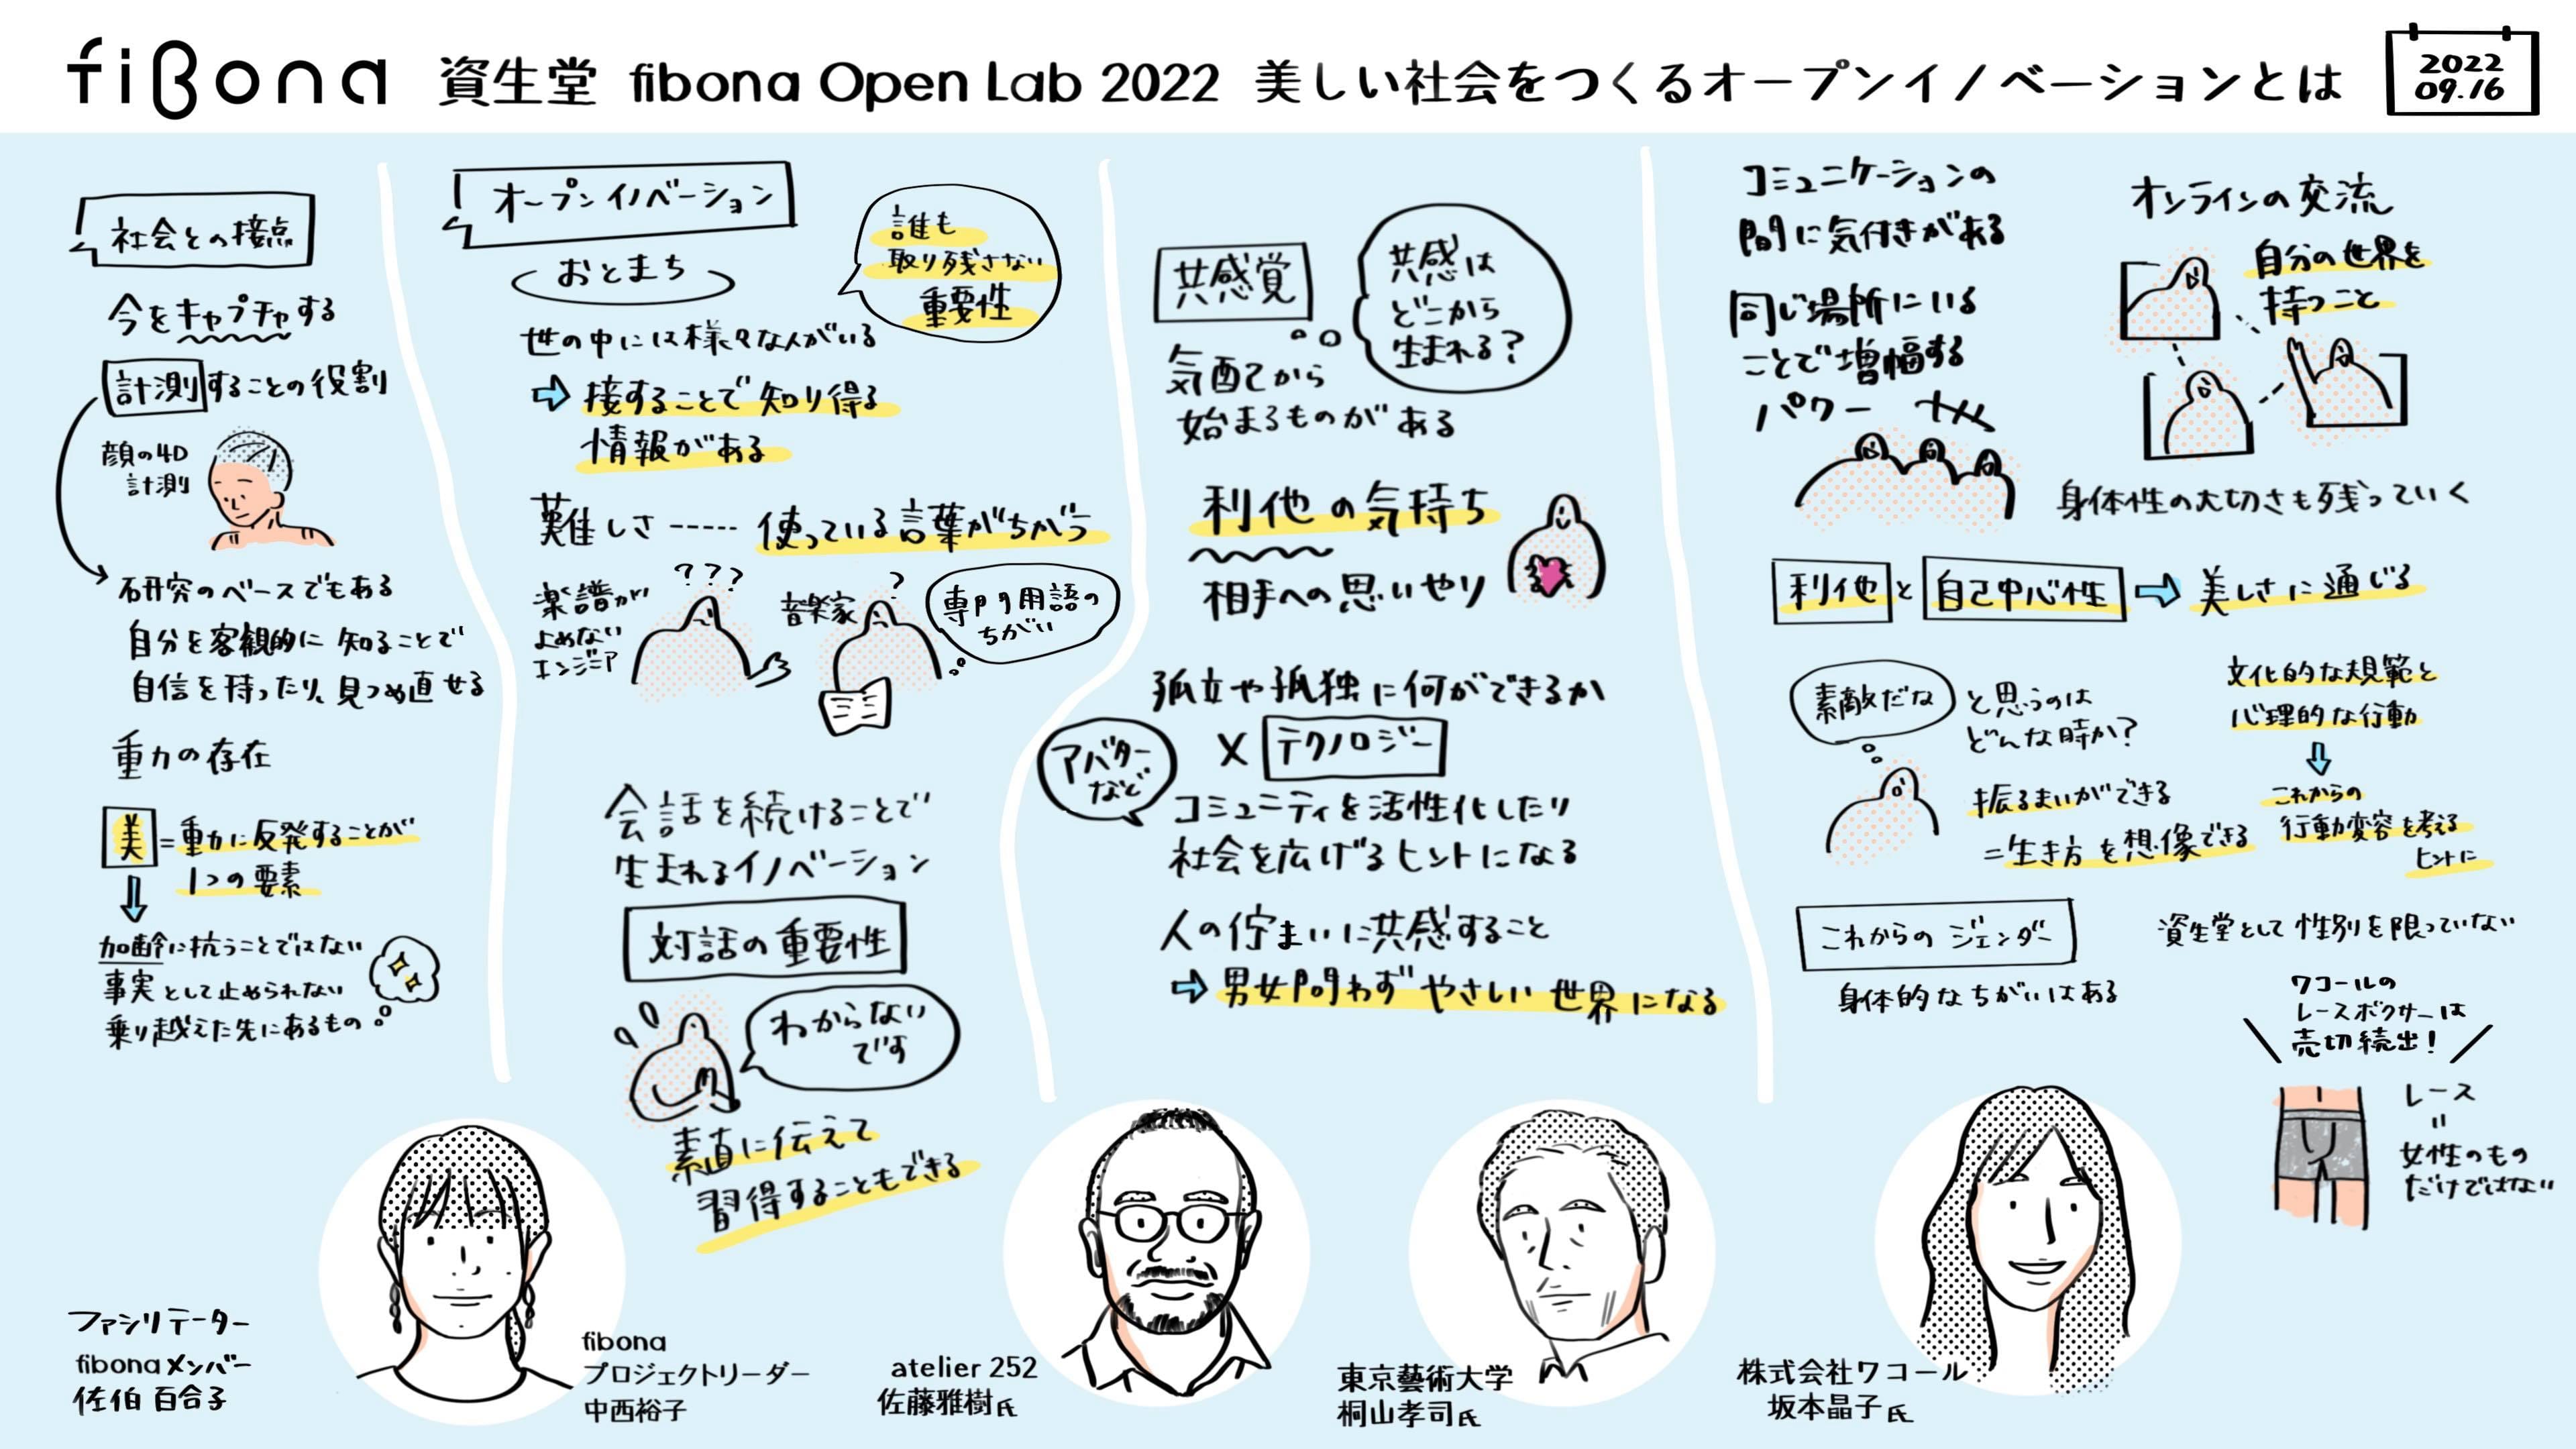 fibona 資生堂 fibona Open Lab 2022 美しい社会をつくるオープンイノベーションとは
2022
09.16
社会との接点
今をキャプチャする
計測することの役割
顔の4D
計測
研究のベースでもある
自分を客観的に知ることで
自信を持ったり、見つめ直せる
重力の存在
美=重力に反発することが
1つの要素
加齢に抗うことではない
事実として止められない
乗り越えた先にあるもの
オープンイノベーション
おとまち
誰も
取り残さない
重要性
世の中には様々な人がいる
接することで知り得る
情報がある
難しさ-----使っている言葉がちがう
楽譜が
よめない
エンジニア
???
音楽家
?
専門用語の
ちがい
会話を続けることで
生まれるイノベーション
対話の重要性
わからない
です
素直に伝えて
習得することもできる
共感覚
共感は
どこから
生まれる?
気配から
始まるものがある
利他の気持ち
相手への思いやり
孤立や孤独に何ができるか
×テクノロジー
アバター
など
コミュニティを活性化したり
社会を広げるヒントになる
人の佇まいに共感すること
男女問わずやさしい世界になる
コミュニケーションの
間に気付きがある
同じ場所にいる
ことで増幅する
パワー
オンラインの交流
自分の世界を
持つこと
身体性の大切さも残っていく
利他と自己中心性
美しさに通じる
素敵だな
と思うのは
どんな時か?
振るまいができる
=生き方を想像できる
文化的な規範と
心理的な行動
これからの
行動変容を考える
ヒントに
これからのジェンダー
身体的なちがいはある
資生堂として性別を限っていない
ワコールの
レースボクサーは
売切続出!
レース
=
女性のもの
だけではない
ファシリテーター
fibonaメンバー
佐伯百合子
fibona
プロジェクトリーダー
中西裕子
atelier 252
佐藤雅樹氏
東京藝術大学
桐山孝司氏
株式会社ワコール
坂本晶子氏